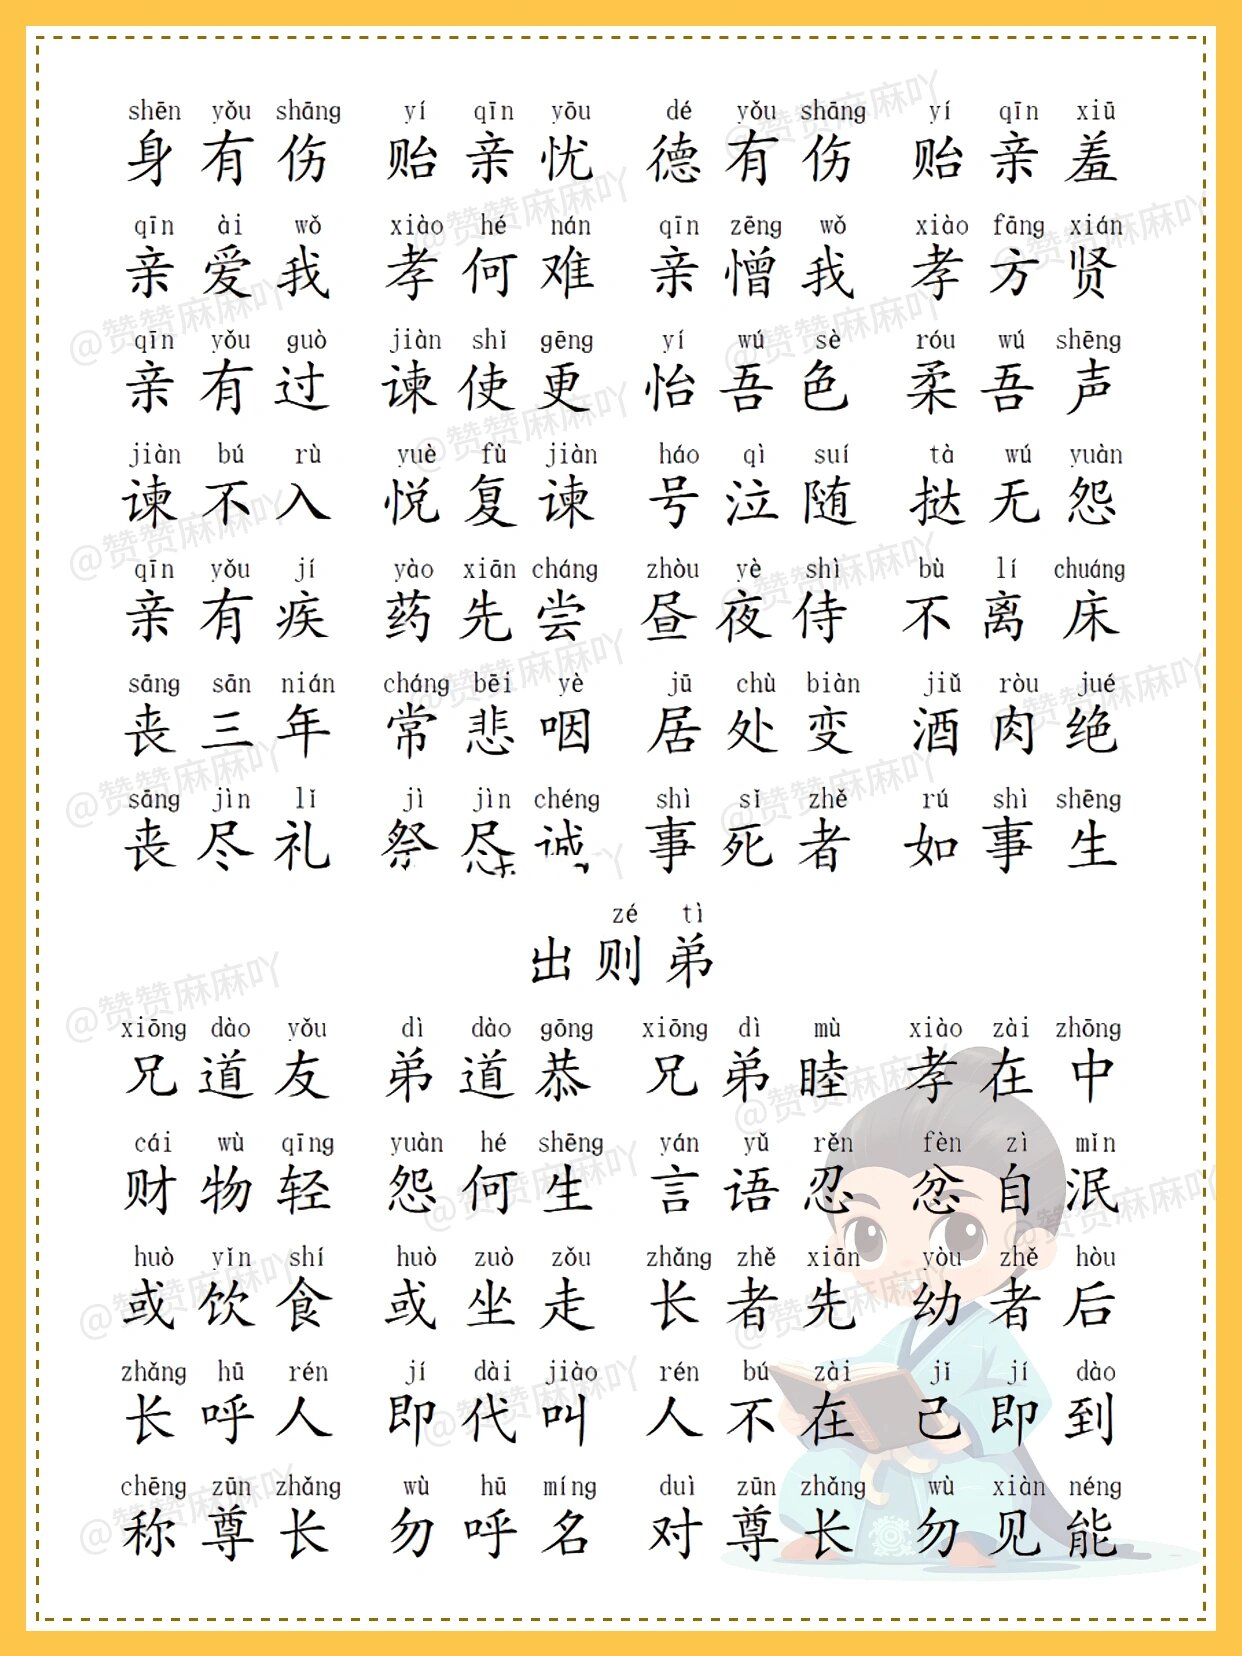 shēn yǒu shāng yí qīn yōu dé yǒu shāng yí qīn xiū
身有伤 贻亲忧 德有伤 贻亲羞
qīn ài wǒ xiào hé nán qīn zēng wǒ xiào fāng xián
亲爱我 孝何难 亲憎我 孝方贤
qīn yǒu guò jiàn shǐ gēng yí wú sè róu wú shēng
亲有过 谏使更 怡吾色 柔吾声
jiàn bú rù yuè fù jiàn háo qì suí tà wú yuàn
谏不入 悦复谏 号泣随 挞无怨
qīn yǒu jí yào xiān cháng zhòu yè shì bù lí chuáng
亲有疾 药先尝 昼夜侍 不离床
sāng sān nián cháng bēi yè jū chù biàn jiǔ ròu jué
丧三年 常悲咽 居处变 酒肉绝
sāng jìn lǐ jì jìn chéng shì sǐ zhě rú shì shēng
丧尽礼 祭尽诚 事死者 如事生
zé tì
出则弟
xiōng dào yǒu dì dào gōng xiōng dì mù xiào zài zhōng
兄道友 弟道恭 兄弟睦 孝在中
cái wù qīng yuàn hé shēng yán yǔ rěn fèn zì mǐn
财物轻 怨何生 言语忍 忿自泯
huò yǐn shí huò zuò zǒu zhǎng zhě xiān yòu zhě hòu
或饮食 或坐走 长者先 幼者后
zhǎng hū rén jí dài jiào rén bú zài jǐ jí dào
长呼人 即代叫 人不在 己即到
chēng zūn zhǎng wù hū míng duì zūn zhǎng wù xiàn néng
称尊长 勿呼名 对尊长 勿见能
@赞赞麻麻吖